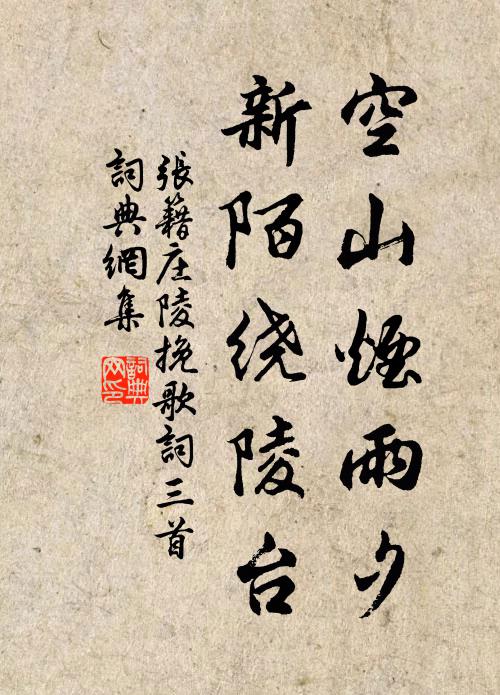 空山煙雨夕
新陌绕陵台
張籍庄陵挽歌詞三首
詞典網集
詞典網印